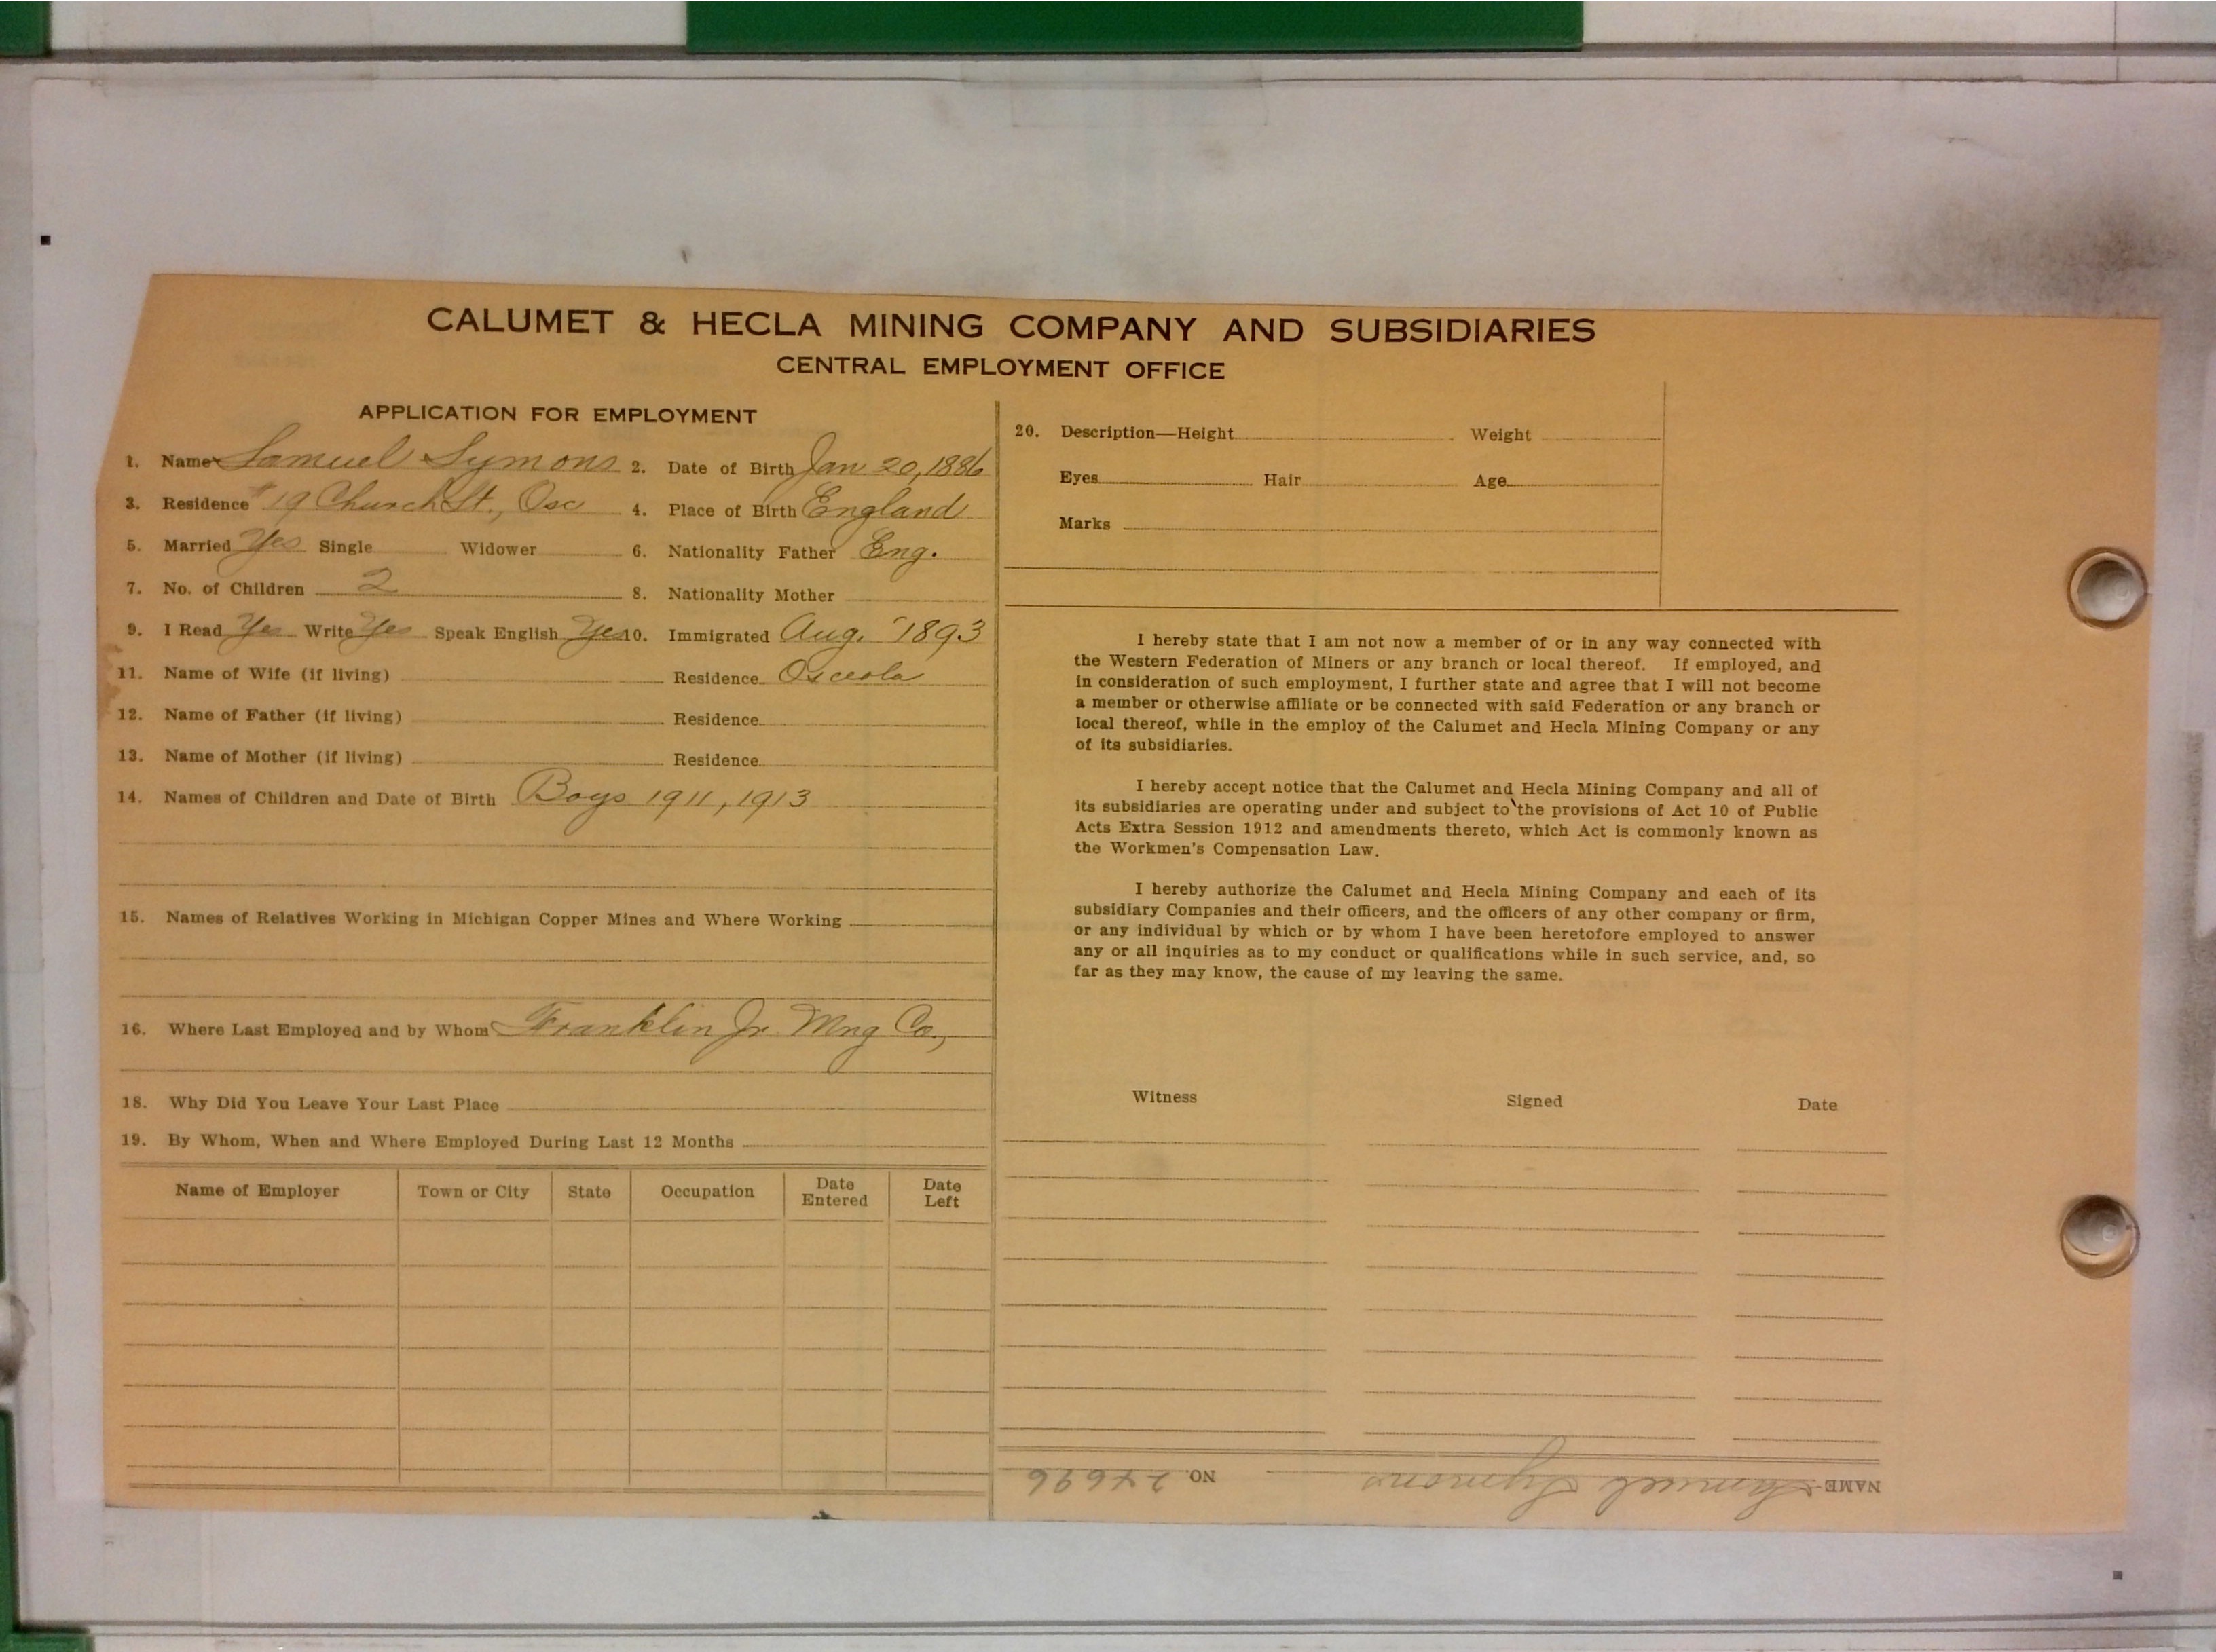 CALUMET & HECLA MINING COMPANY AND SUBSIDIARIES
CENTRAL EMPLOYMENT OFFICE
APPLICATION FOR EMPLOYMENT
1. Name Samuel Symons 2. Date of Birth Jan 20, 1886
3. Residence #19 Church St., Osc 4. Place of Birth England
5. Married Yes Single Widower 6. Nationality Father Eng.
7. No. of Children 2 8. Nationality Mother
9. I Read Yes Write Yes Speak English Yes 10. Immigrated Aug. '1893
11. Name of Wife (if living) Residence Osceola
12. Name of Father (if living) Residence
13. Name of Mother (if living) Residence
14. Names of Children and Date of Birth Boys 1911, 1913
15. Names of Relatives Working in Michigan Copper Mines and Where Working
16. Where Last Employed and by Whom Franklin Jr. Mng Co.,
18. Why Did You Leave Your Last Place
19. By Whom, When and Where Employed During Last 12 Months
Name of Employer Town or City State Occupation Date Entered Date Left
20. Description—Height Weight
Eyes Hair Age
Marks
I hereby state that I am not now a member of or in any way connected with
the Western Federation of Miners or any branch or local thereof. If employed, and
in consideration of such employment, I further state and agree that I will not become
a member or otherwise affiliate or be connected with said Federation or any branch or
local thereof, while in the employ of the Calumet and Hecla Mining Company or any
of its subsidiaries.
I hereby accept notice that the Calumet and Hecla Mining Company and all of
its subsidiaries are operating under and subject to the provisions of Act 10 of Public
Acts Extra Session 1912 and amendments thereto, which Act is commonly known as
the Workmen's Compensation Law.
I hereby authorize the Calumet and Hecla Mining Company and each of its
subsidiary Companies and their officers, and the officers of any other company or firm,
or any individual by which or by whom I have been heretofore employed to answer
any or all inquiries as to my conduct or qualifications while in such service, and, so
far as they may know, the cause of my leaving the same.
Witness Signed Date
NAME Samuel Symons NO. 24696